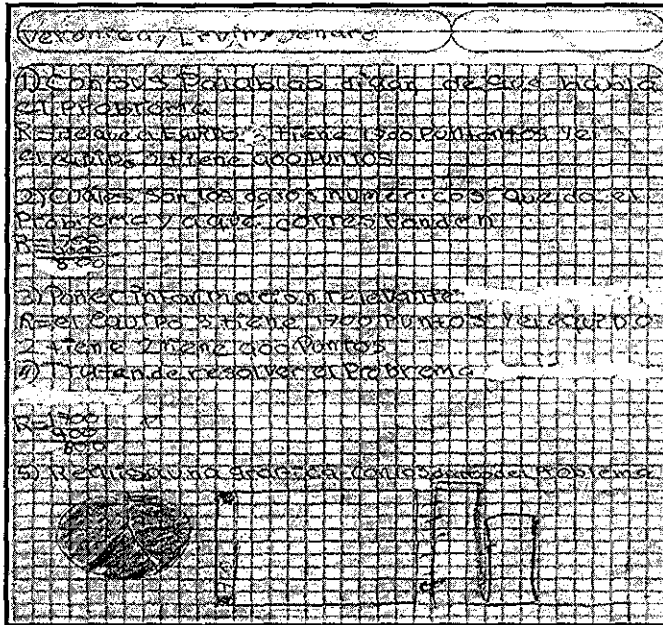 Veronica, Levin y Jenare
1) Con tus Palabras digan de que habla
el Problema
R= de que el Equipo 3 tiene 1700 Puntos y el
el equipo 2 tiene 900 Puntos
2) Cuales son los datos numericos que da el
Problema y a que corresponden
R=
800
3) Poner informacion relevante
R= el equipo 3 tiene 1700 Puntos y el equipo
2 tiene 900 Puntos
4) Traten de resolver el Problema
R= 1700
900
800
5) Realiza una grafica con los datos del Problema